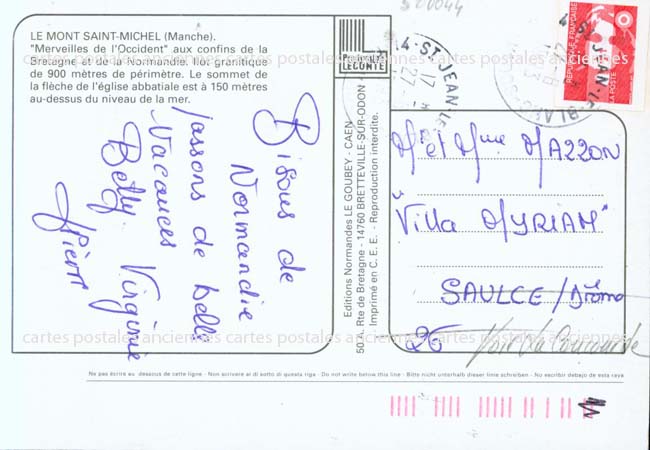 LE MONT SAINT-MICHEL (Manche).
"Merveilles de l'Occident" aux confins de la
Bretagne et de la Normandie. Iloc granitique
de 900 mètres de périmètre. Le sommet de
la flèche de l'église abbatiale est à 150 mètres
au-dessus du niveau de la mer.
Bisous de
Normandie
passons de belle
Vacances
Betty Virginie
Pierre
LECONTE
Editions Normandes LE GOUBEY - CAEN
50 A, Rte de Bretagne - 14760 BRETTEVILLE-SUR-ODON
Imprimé en C.E.E. - Reproduction interdite.
14-ST-JEAN-LE-BLANC
17 H
27
REPUBLIQUE FRANCAISE
LA POSTE
M et Mme MAZZON
"Villa MYRIAM"
SAULCE/Drôme
26
Voir La Coucourde
cartes postales anciennes cartes postales anciennes cartes postales anciennes
Ne pas écrire au dessous de cette ligne - Non scrivere al di sotto di questa riga - Do not write below this line - Bitte nicht unterhalb dieser linie schreiben - No escribir debajo de esta raya